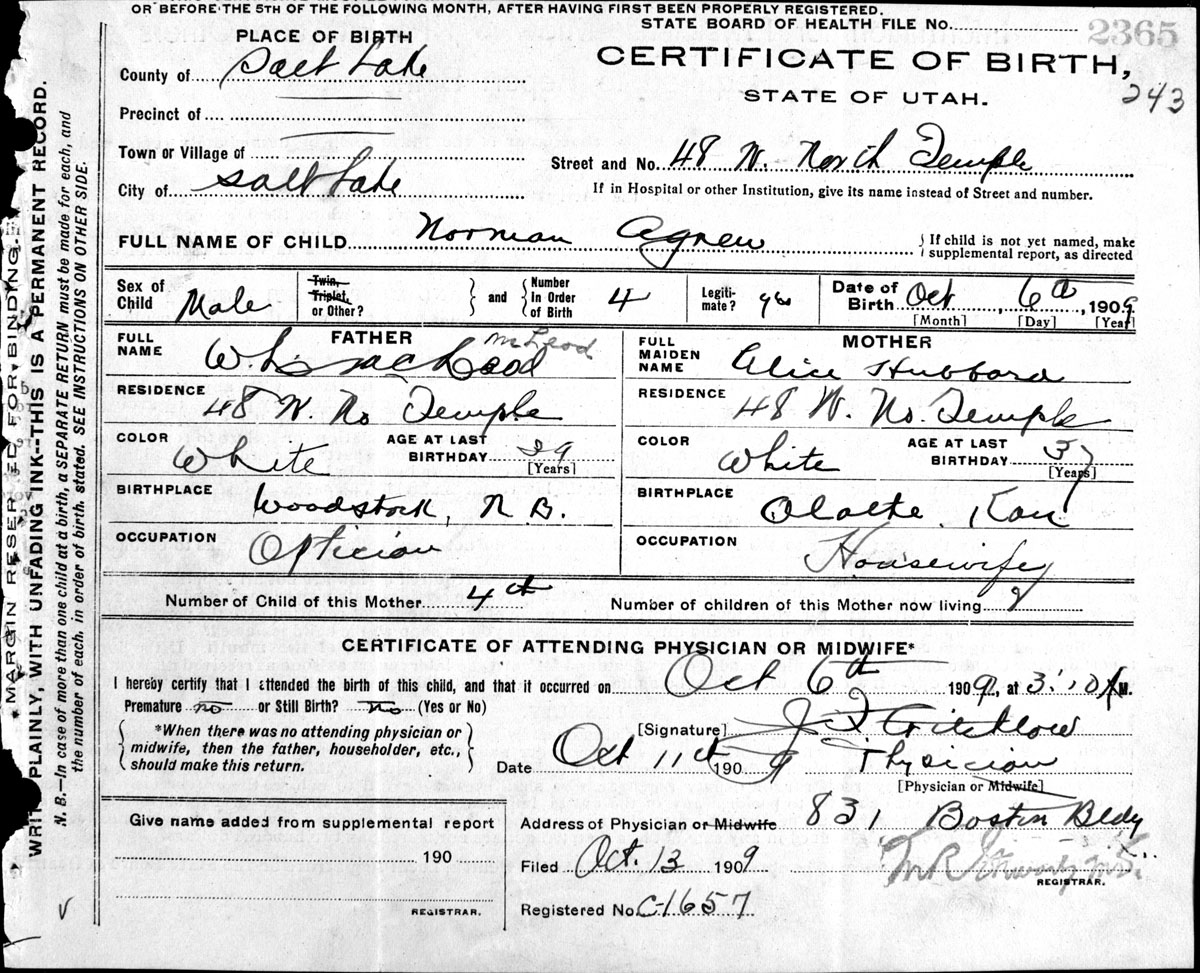 OR BEFORE THE 5TH OF THE FOLLOWING MONTH, AFTER HAVING FIRST BEEN PROPERLY REGISTERED.
STATE BOARD OF HEALTH FILE No. 2365
PLACE OF BIRTH
CERTIFICATE OF BIRTH,
STATE OF UTAH.
243
County of Salt Lake
Precinct of
Town or Village of
Street and No. 48 W. North Temple
City of Salt Lake
If in Hospital or other Institution, give its name instead of Street and number.
FULL NAME OF CHILD Norman Agnew
If child is not yet named, make supplemental report, as directed
Sex of Child Male
Twin, Triplet, or Other?
and Number In Order of Birth 4
Legitimate? yes
Date of Birth Oct 6th, 1909
[Month] [Day] [Year]
FATHER
FULL NAME W. H. MacLeod
McLeod
RESIDENCE 48 W. No Temple
COLOR White
AGE AT LAST BIRTHDAY 39
[Years]
BIRTHPLACE Woodstock, N. B.
OCCUPATION Optician
MOTHER
FULL MAIDEN NAME Alice Hubbard
RESIDENCE 48 W. No. Temple
COLOR White
AGE AT LAST BIRTHDAY 37
[Years]
BIRTHPLACE Olathe. Kan
OCCUPATION Housewife
Number of Child of this Mother 4th
Number of children of this Mother now living
CERTIFICATE OF ATTENDING PHYSICIAN OR MIDWIFE*
I hereby certify that I attended the birth of this child, and that it occurred on Oct 6th 1909, at 3:10 A M.
Premature no or Still Birth? No (Yes or No)
*When there was no attending physician or midwife, then the father, householder, etc., should make this return.
[Signature] J. F. Critchlow
Date Oct 11th 1909 Physician
[Physician or Midwife]
Give name added from supplemental report
190
REGISTRAR.
Address of Physician or Midwife 831 Boston Bldg
Filed Oct. 13 1909
REGISTRAR.
Registered No. C-1657
MARGIN RESERVED FOR BINDING.
WRITE PLAINLY, WITH UNFADING INK--THIS IS A PERMANENT RECORD.
N. B.—In case of more than one child at a birth, a SEPARATE RETURN must be made for each, and
the number of each, in order of birth, stated. SEE INSTRUCTIONS ON OTHER SIDE.